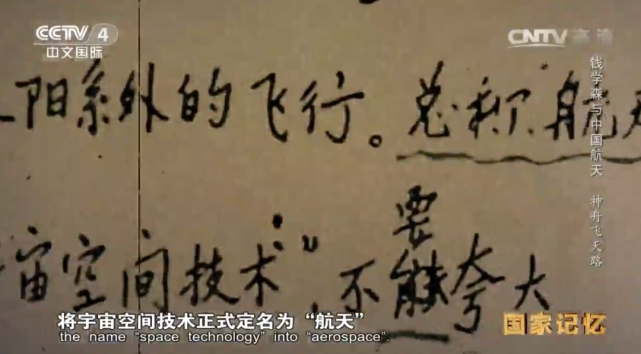 CCTV 4
中文国际
CNTV 高清
阳系外的飞行。总称"航天
宙空间技术"，不要
能夸大
钱学森与中国航天 神舟飞天路
将宇宙空间技术正式定名为“航天”
the name "space technology" into "aerospace".
国家记忆